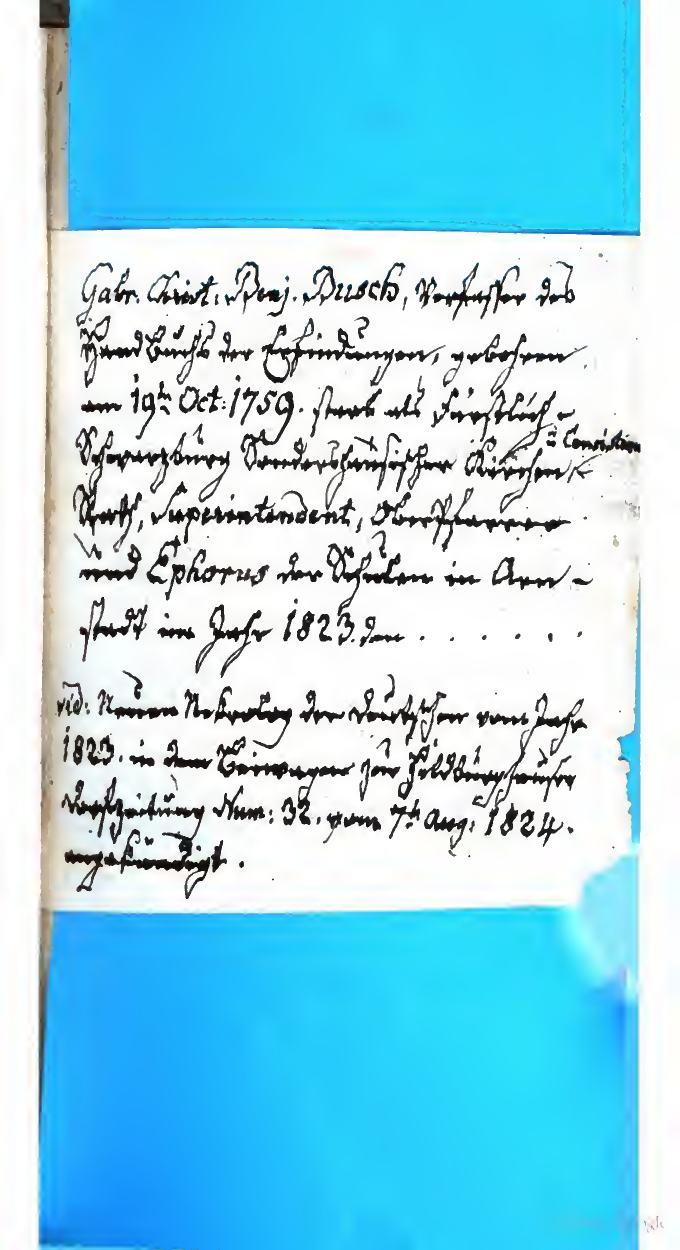 Gabr. Christ. Benj. Busch, Verfasser des
Handbuchs der Erfindungen, gebohren
am 19ten Oct: 1759. starb als Fürstlich
Schwarzburg Sondershäusischer Kirchen-
u Consistori
Rath, Superintendent, Oberpfarrer
und Ephorus der Schulen in Arn-
stadt im Jahr 1823. den . . . . . . .
vid: Neuen Nekrolog der Deutschen vom Jahr
1823. in dem Beiwagen zur Hildburghäuser
Dorfzeitung Num: 32. vom 7ten Aug: 1824.
angekündigt.